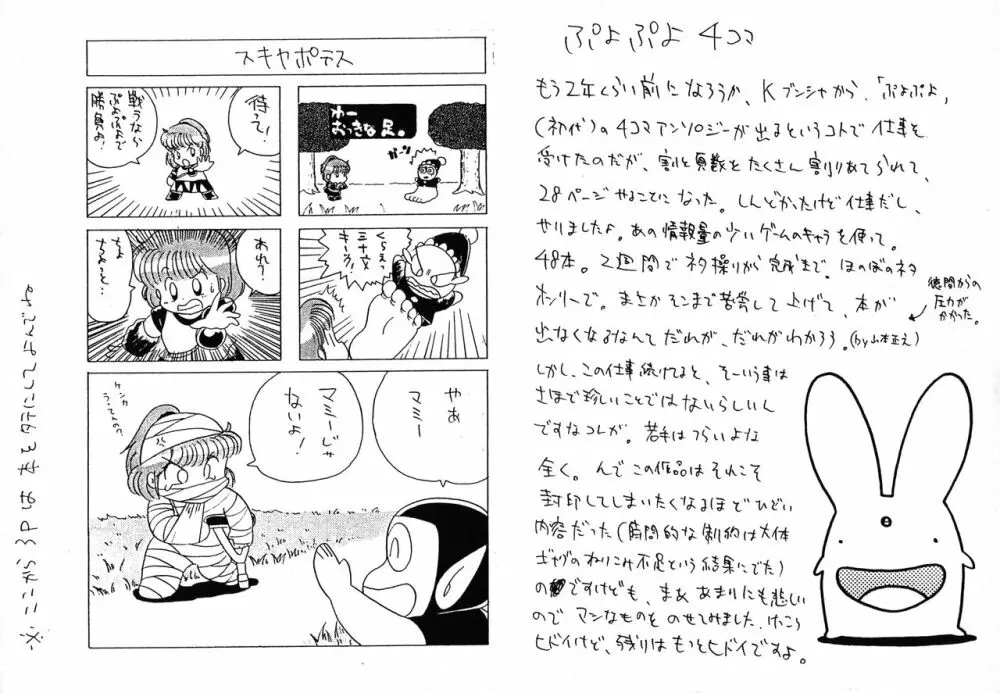 ぷよぷよ 4コマ
もう2年くらい前になろうか、Kブンシャから、「ぷよぷよ」
(初代)の4コマアンソロジーが出るというコトで仕事を
受けたのだが、割と頁数をたくさん割りあてられて、
28ページやることになった。しんどかったけど仕事だし、
やりましたよ。あの情報量の少いゲームのキャラを使って。
48本。2週間でネタ操りから完成まで。ほのぼのネタ
オンリーで。まさかそこまで苦労して上げて、本が
出なくなるなんてだれが、だれがわかろう。(by山本正え)
徳間からの
圧力が
かかった。
しかし、この仕事続けてると、そーいう事は
さほで珍しいことではないらしいん
ですなコレが。若手はつらいよな
全く。んでこの作品はそれこそ
封印してしまいたくなるほどひどい
内容だった(時間的な制約は大体
ギャグのねりこみ不足という結果にでた)
のですけども、まぁあまりにも悲しい
のでマシなものをのせてみました。けっこう
ヒドイけど、残りはもっとヒドイですよ。
スキヤポデス
わー
おっきな足。
ガーン
待って!
戦うなら
ぷよぷよで
勝負よ!
くらえ
三十文
キーック!
あれ?
ちょ
ちょっと…
やぁ
マミー
マミーじゃ
ないよ!
ケンカ
うってんの?
※ここから3Pは本をタテにしてよんでネ